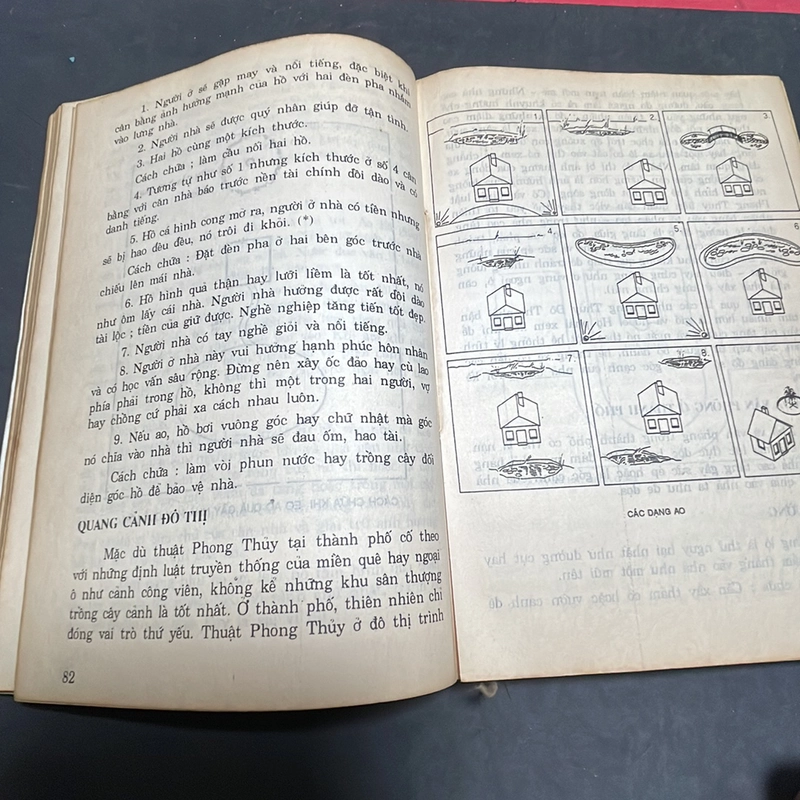 1. Người ở sẽ gặp may và nổi tiếng, đặc biệt khi
cân bằng ảnh hưởng mạnh của hồ với hai đèn pha nhắm
vào lưng nhà.
2. Người nhà sẽ được quý nhân giúp đỡ tận tình.
3. Hai hồ cùng một kích thước.
Cách chữa : làm cầu nối hai hồ.
4. Tương tự như số 1 nhưng kích thước ở số 4 cân
bằng với căn nhà báo trước nền tài chính dồi dào và có
danh tiếng.
5. Hồ cá hình cong mở ra, người ở nhà có tiền nhưng
sẽ bị hao đều đều, nó trôi đi khỏi. (*)
Cách chữa : Đặt đèn pha ở hai bên góc trước nhà
chiếu lên mái nhà.
6. Hồ hình quả thận hay lưỡi liềm là tốt nhất, nó
như ôm lấy cái nhà. Người nhà hưởng được rất dồi dào
tài lộc ; tiền của giữ được. Nghề nghiệp tăng tiến tốt đẹp.
7. Người nhà có tay nghề giỏi và nổi tiếng.
8. Người ở nhà này vui hưởng hạnh phúc hôn nhân
và có học vấn sâu rộng. Đừng nên xây ốc đảo hay cù lao
phía phải trong hồ, không thì một trong hai người, vợ
hay chồng cứ phải xa cách nhau luôn.
9. Nếu ao, hồ bơi vuông góc hay chữ nhật mà góc
nó chĩa vào nhà thì người nhà sẽ đau ốm, hao tài.
Cách chữa : làm vòi phun nước hay trồng cây đối
diện góc hồ để bảo vệ nhà.
QUANG CẢNH ĐÔ THỊ
Mặc dù thuật Phong Thủy tại thành phố cố theo
với những định luật truyền thống của miền quê hay ngoại
ô như cảnh công viên, không kể những khu sân thượng
trồng cây cảnh là tốt nhất. Ở thành phố, thiên nhiên chỉ
đóng vai trò thứ yếu. Thuật Phong Thủy ở đô thị trình
82
1.
2.
3.
4.
5.
6.
7.
8.
CÁC DẠNG AO